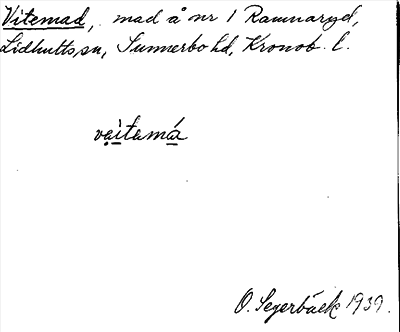 Vitemad, mad å nr 1 Ramnaryd,
Lidhults sn, Sunnerbo hd, Kronob. l.
vaitemá
O. Segerbäck 1939.